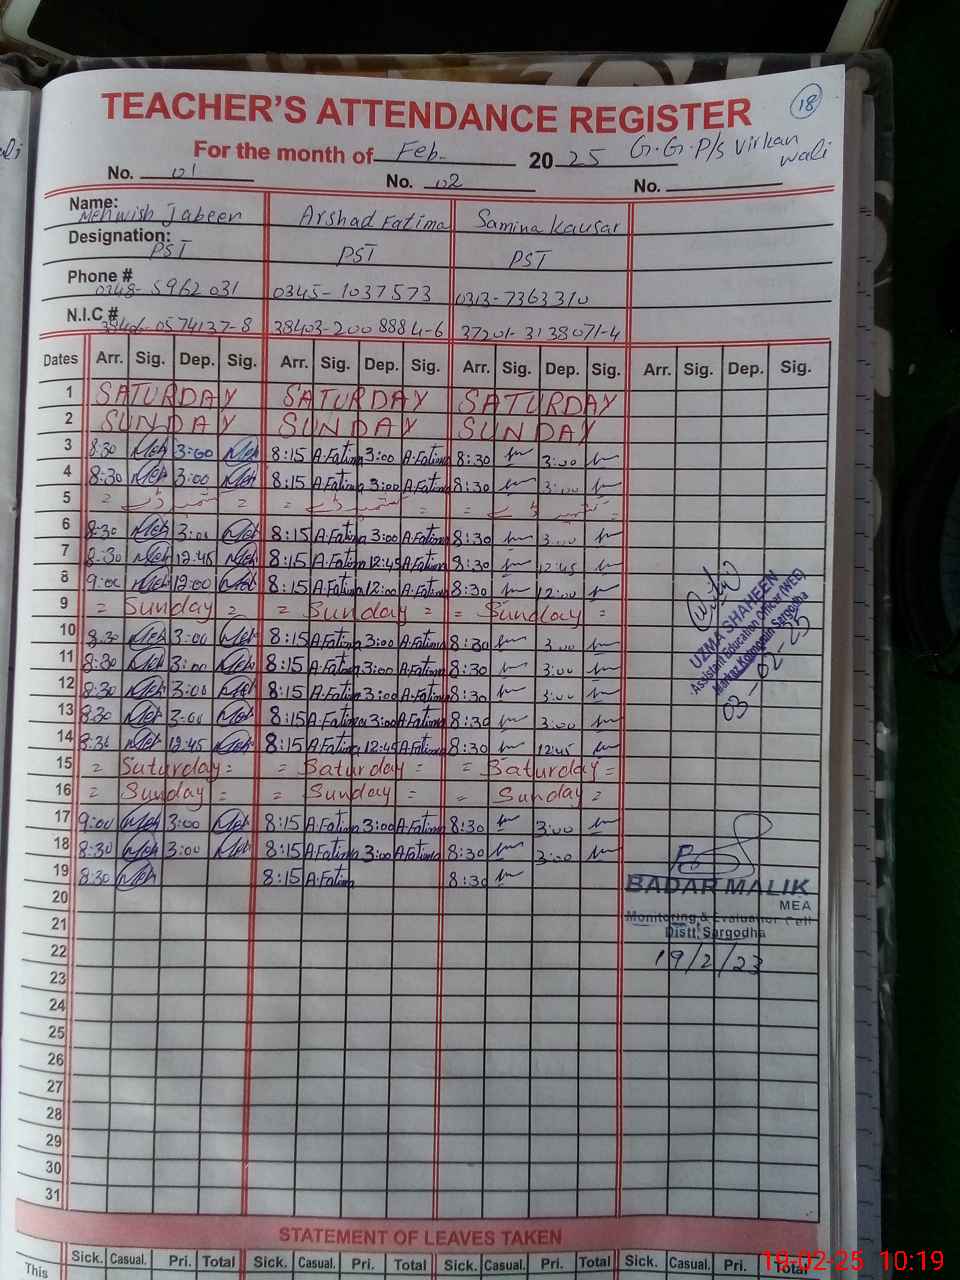 18
TEACHER'S ATTENDANCE REGISTER
For the month of Feb- 2025 G.G.P/s Virkan wali
No. 01 No. 02 No.
Name: Mehwish Jabeen Arshad Fatima Samina Kausar
Designation: PST PST PST
Phone # 0348-5962031 0345-1037573 0313-7363310
N.I.C # 0574137-8 38403-2008884-6 37201-3138071-4
Dates Arr. Sig. Dep. Sig. Arr. Sig. Dep. Sig. Arr. Sig. Dep. Sig. Arr. Sig. Dep. Sig.
1 SATURDAY SATURDAY SATURDAY
2 SUNDAY SUNDAY SUNDAY
3 8:30 Meh 3:00 Meh 8:15 A.Fatima 3:00 A.Fatima 8:30 3:00
4 8:30 Meh 3:00 Meh 8:15 A.Fatima 3:00 A.Fatima 8:30 3:00
5 = = = = = =
6 8:30 Meh 3:00 Meh 8:15 A.Fatima 3:00 A.Fatima 8:30 3:00
7 8:30 Meh 12:45 Meh 8:15 A.Fatima 12:45 A.Fatima 8:30 12:45
8 9:00 Meh 12:00 Meh 8:15 A.Fatima 12:00 A.Fatima 8:30 12:00
9 = Sunday = = Sunday = = Sunday =
10 8:30 Meh 3:00 Meh 8:15 A.Fatima 3:00 A.Fatima 8:30 3:00
11 8:30 Meh 3:00 Meh 8:15 A.Fatima 3:00 A.Fatima 8:30 3:00
12 8:30 Meh 3:00 Meh 8:15 A.Fatima 3:00 A.Fatima 8:30 3:00
13 8:30 Meh 3:00 Meh 8:15 A.Fatima 3:00 A.Fatima 8:30 3:00
14 8:30 Meh 12:45 Meh 8:15 A.Fatima 12:45 A.Fatima 8:30 12:45
15 = Saturday = = Saturday = = Saturday =
16 = Sunday = = Sunday = = Sunday =
17 9:00 Meh 3:00 Meh 8:15 A.Fatima 3:00 A.Fatima 8:30 3:00
18 8:30 Meh 3:00 Meh 8:15 A.Fatima 3:00 A.Fatima 8:30 3:00
19 8:30 Meh 8:15 A.Fatima 8:30
20
21
22
23
24
25
26
27
28
29
30
31
UZMA SHAHEEN
Assistant Education Officer (WEE)
Markaz Sargodha
03-02-25
BADAR MALIK
MEA
Monitoring & Evaluation Cell
Distt: Sargodha
19/2/23
STATEMENT OF LEAVES TAKEN
Sick. Casual. Pri. Total Sick. Casual. Pri. Total Sick. Casual. Pri. Total Sick. Casual. Pri. Total
This
19-02-25 10:19